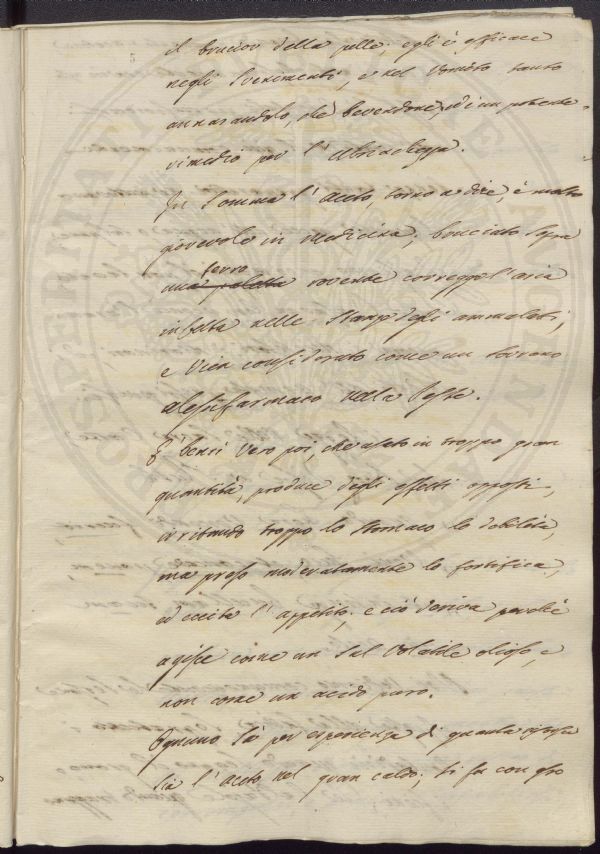 5
il brucior della pelle; egli è efficace
negli Svenimenti, e nel Vomito tanto
annasandolo, che bevendone, ed è un potente
rimedio per l'Ubriachezza.
In Somma l'Aceto, torno a dire, è molto
giovevole in Medicina, bruciato Sopra
ferro
una paletta rovente corregge l'aria
infetta nelle Stanze degli ammalati,
e Vien considerato come un Sovrano
alessifarmaco nella Peste.
È bensì Vero poi, che usato in troppo gran
quantità, produce degli effetti opposti,
irritando troppo lo Stomaco lo debilita,
ma preso moderatamente lo fortifica,
ed eccita l'appetito, e ciò deriva perchè
agisce come un Sal Volatile olioso, e
non come un acido puro.
Ognuno Sa per esperienza di quanta
Sia l'Aceto nel gran caldo; Si fa con